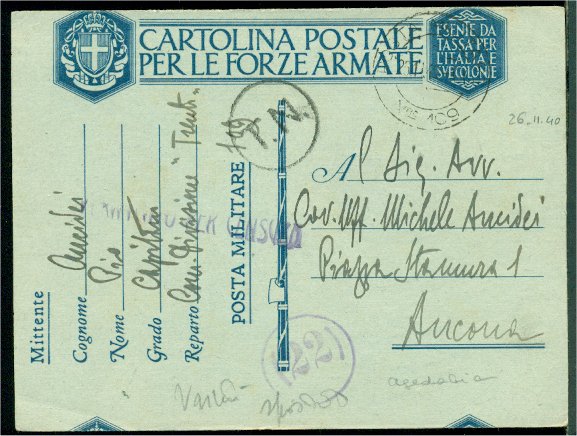 CARTOLINA POSTALE
PER LE FORZE ARMATE
ESENTE DA
TASSA PER
L'ITALIA E
SVE COLONIE
Nº 109
T.N.
26.11.40
Al Sig. Avv.
Cav. Uff. Michele Ancidei
Piazza Stamura 1
Ancona
Mittente
Cognome Ancidei
Nome Pio
Grado Capitano
Reparto Com. Divisione "Trento"
POSTA MILITARE 109
PER CENSURA
22
agedabia